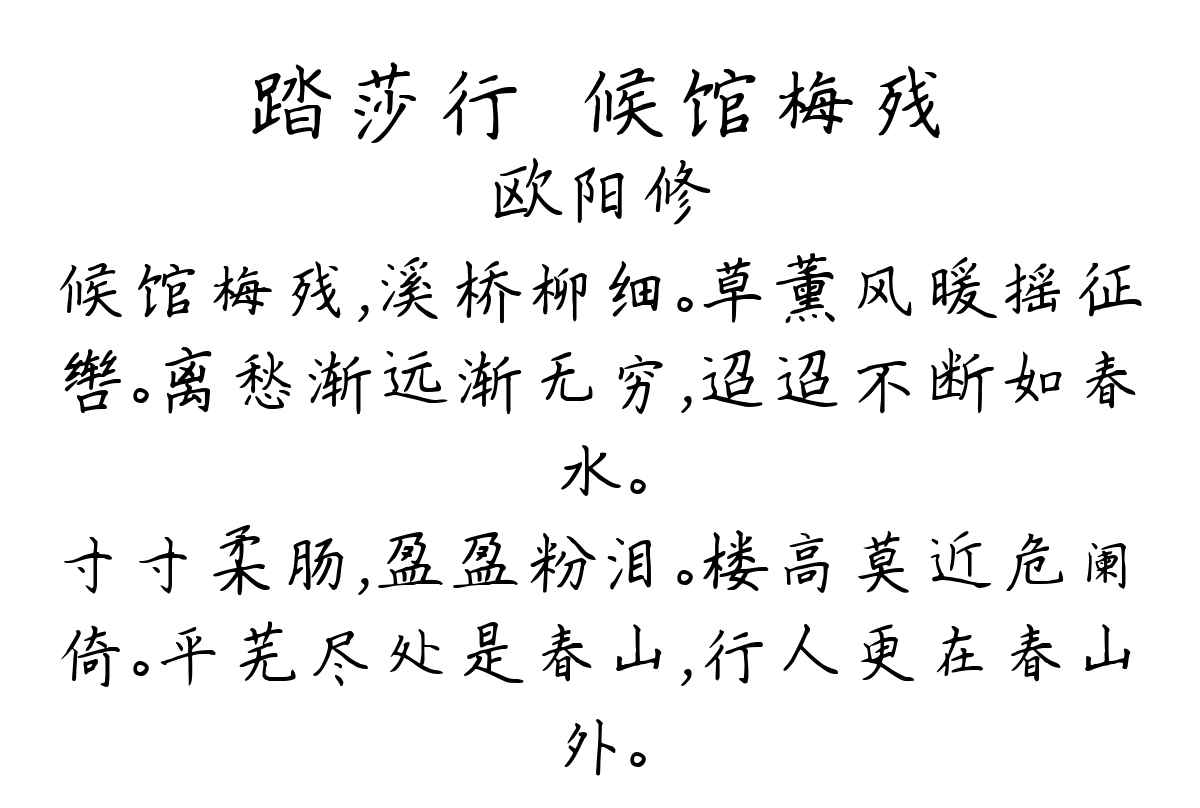 踏莎行 候馆梅残
欧阳修
候馆梅残,溪桥柳细。草薰风暖摇征
辔。离愁渐远渐无穷,迢迢不断如春
水。
寸寸柔肠,盈盈粉泪。楼高莫近危阑
倚。平芜尽处是春山,行人更在春山
外。